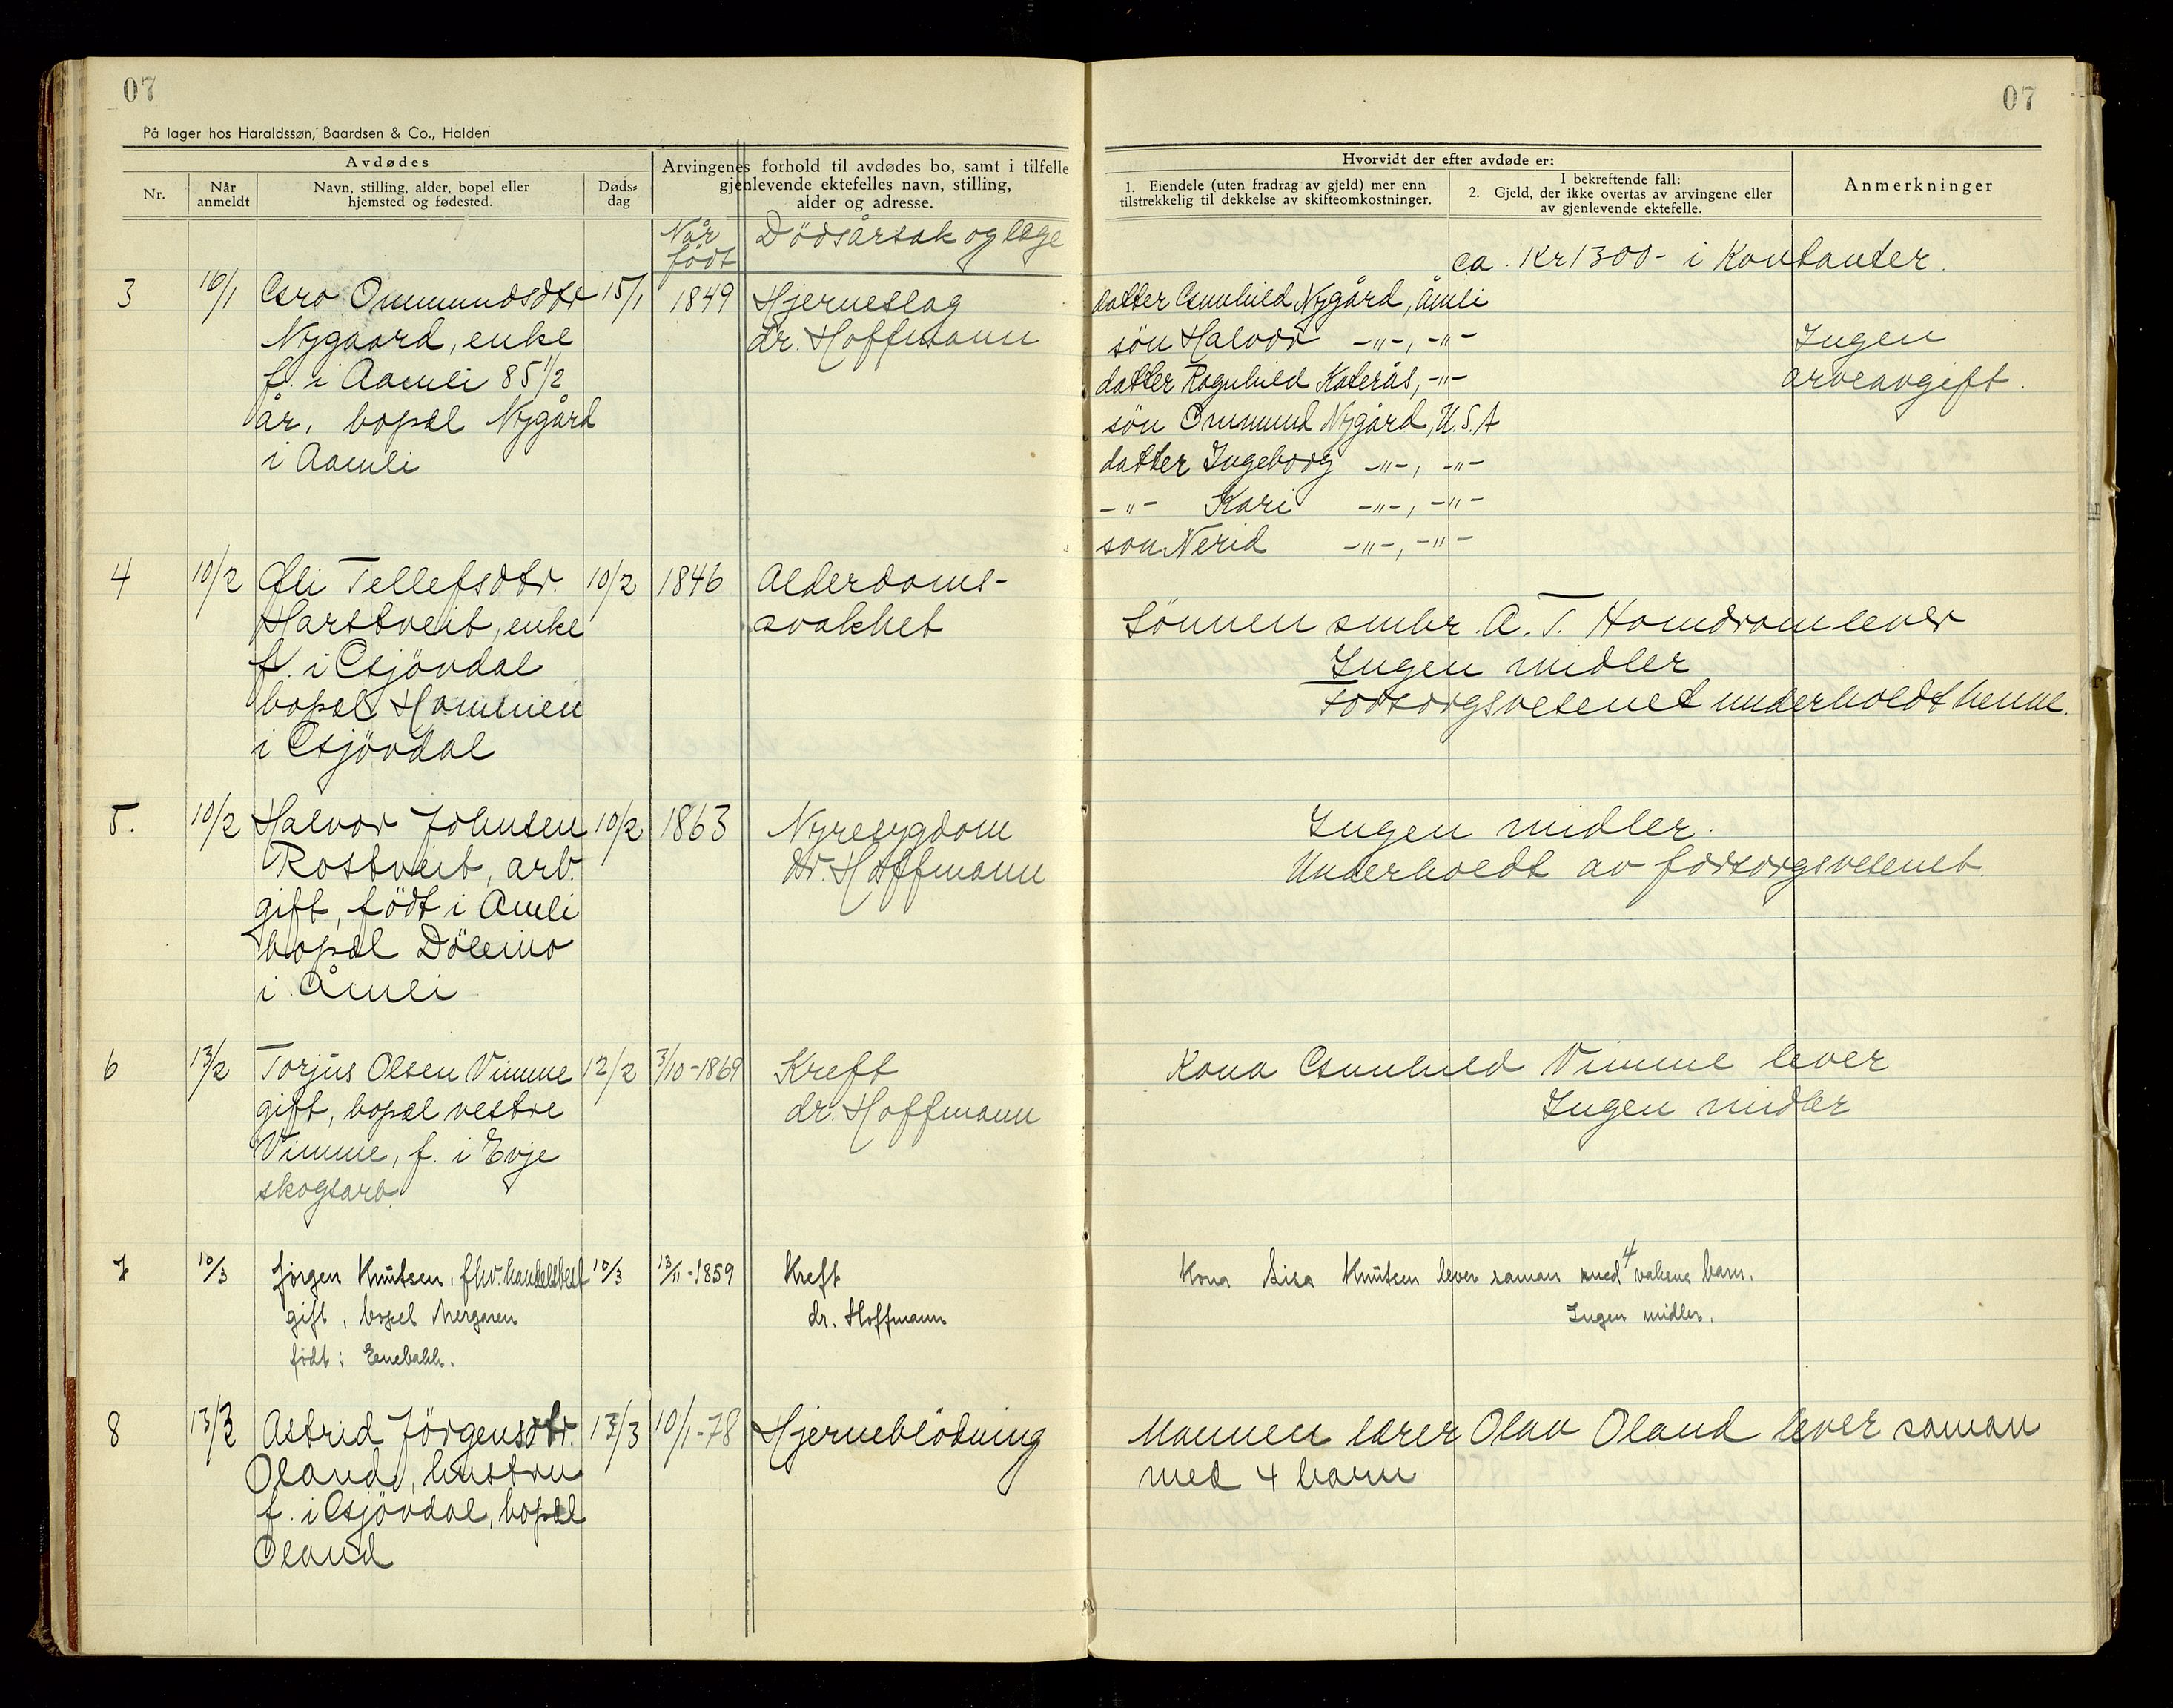 07
07
På lager hos Haraldssøn, Baardsen & Co., Halden
Avdødes
Nr.
Når anmeldt
Navn, stilling, alder, bopel eller hjemsted og fødested.
Døds-dag
Arvingenes forhold til avdødes bo, samt i tilfelle
gjenlevende ektefelles navn, stilling,
alder og adresse.
Hvorvidt der efter avdøde er:
1. Eiendele (uten fradrag av gjeld) mer enn
tilstrekkelig til dekkelse av skifteomkostninger.
I bekreftende fall:
2. Gjeld, der ikke overtas av arvingene eller
av gjenlevende ektefelle.
Anmerkninger
Når født
Dödsårsak og læge
ca. Kr 1300- i Kontanter.
3 16/1 Gro Ommundsdtr 15/1 1849 Hjerneslag
Nygaard, enke dr. Hoffmann
f. i Aamli 85 1/2
år, bopæl Nygård
i Aamli
datter Gunhild Nygård, Åmli
sön Halvor -"-, -"-
datter Ragnhild Katerås, -"-
sön Ommund Nygård, U.S.A
datter Ingeborg -"-, -"-
-"- Kari -"-, -"-
son Nerid -"-, -"-
Ingen
arveavgift.
4 10/2 Tellefsdtr. 10/2 1846 Alderdoms-
Hartveit, enke svakhet
f. i Gjövdal
bopæl Hommen
i Gjövdal
Sönnen smbr. A. T. Homdrom lever
Ingen midler
Forsorgsvesenet underholdt henne.
5. 10/2 Halvor Johnsen 10/2 1863 Nyresygdom
Rostveit, arb. dr. Hoffmann
gift, födt i Åmli
bopæl Dölemo
i Åmli
Ingen midler.
Underholdt av forsorgsvesenet
6 13/2 Torjus Olsen Vimme 12/2 3/10-1869 Kreft
gift, bopæl vestre dr. Hoffmann
Vimme, f. i Evje
skogsarb.
Kona Gunhild Vimme lever
Ingen midler
7 10/3 Jörgen Knutsen, fhv. handelsbest 10/3 13/11-1859 Kreft
gift, bopel dr. Hoffmann
födt i Enebakk.
Kona Lisa Knutsen lever saman med 4 vaksne barn.
Ingen midler.
8 13/3 Astrid Jörgensdtr. 13/3 10/1-78 Hjerneblödning
Oland, hustru
f. i Gjövdal, bopæl
Oland
Mannen lærer Olav Oland lever saman
med 4 barn